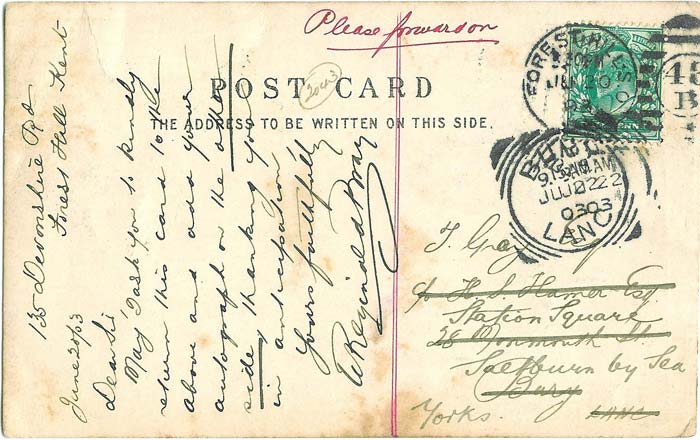 Please forward on
POST CARD
THE ADDRESS TO BE WRITTEN ON THIS SIDE.
135 Devonshire Rd
Forest Hill Kent
June 20/03
Dear Sir
May I ask you to kindly
return this card to the
above and add your
autograph on the other
side, thanking you
in anticipation
Yours faithfully
W Reginald Bray
FOREST HILL S.O
LANC
0303
T. Gray
c/o H. S. Hamer Esq
Station Square
28 Monmouth St
Saltburn by Sea
Bury
Yorks. LANC